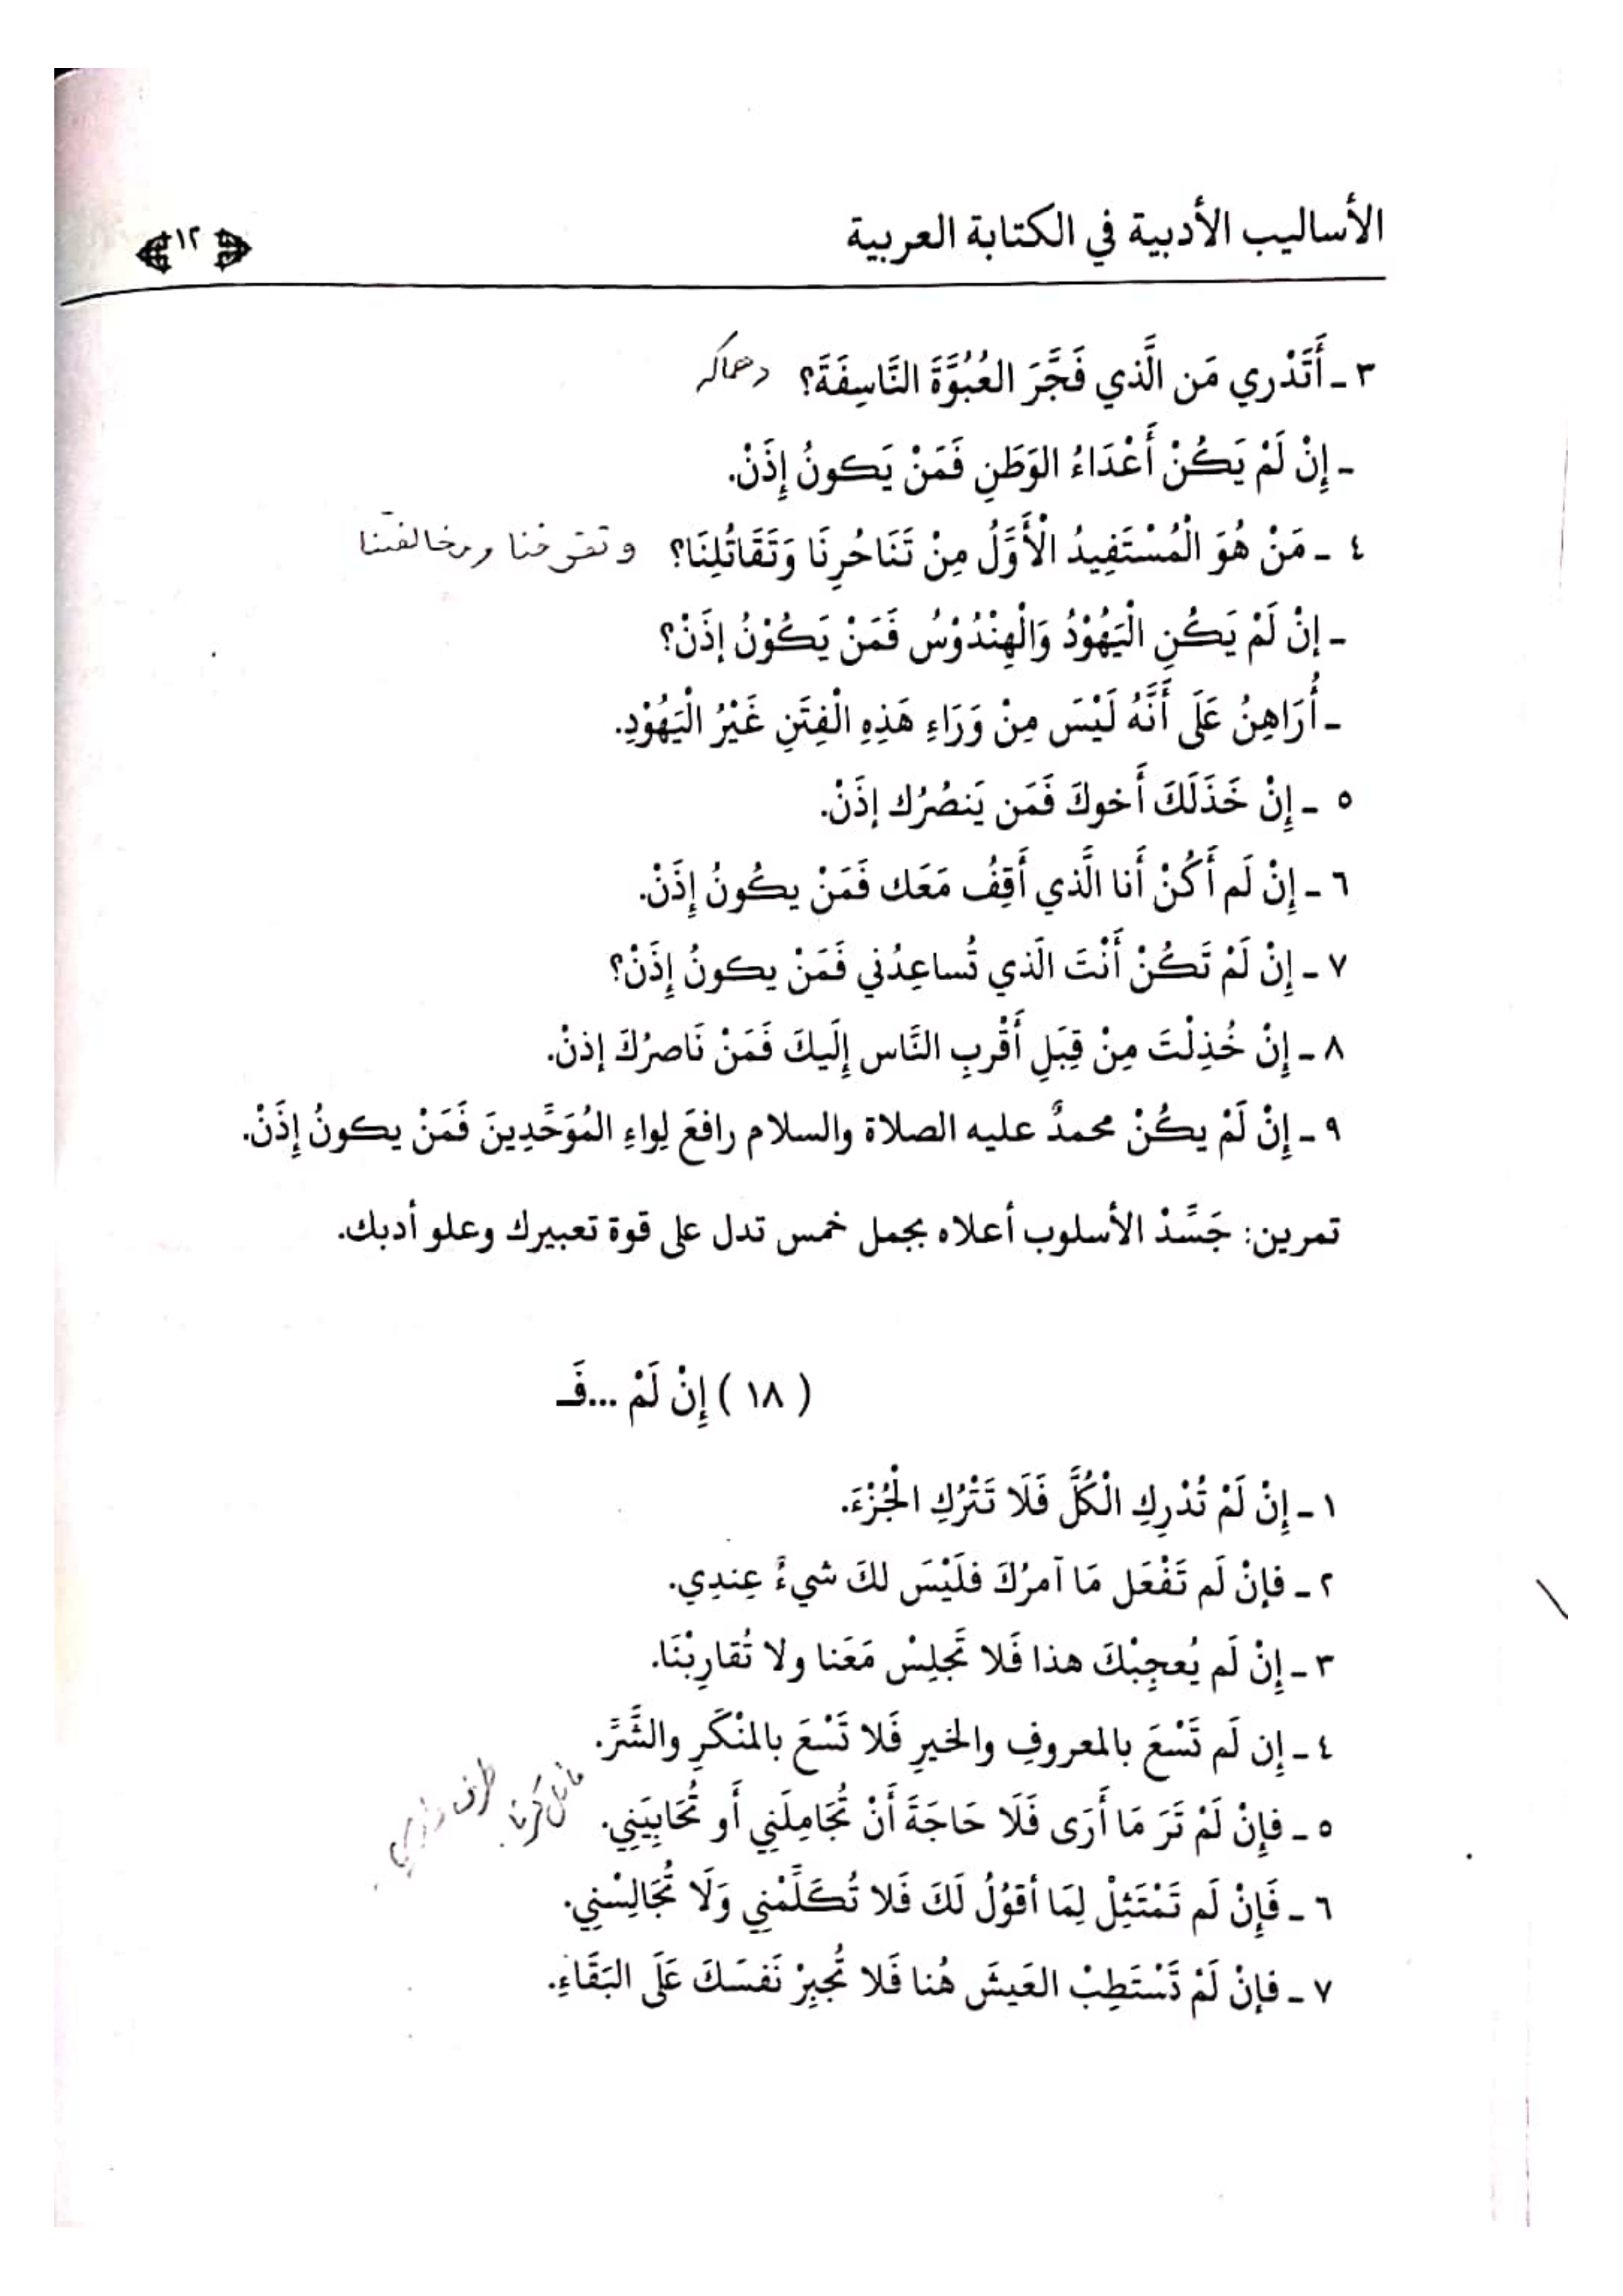 الأساليب الأدبية في الكتابة العربية ١٢
٣ ـ أَتَدْري مَن الَّذي فَجَّرَ العُبُوَّةَ النَّاسِفَةَ؟ دھماکہ
ـ إِنْ لَمْ يَكُنْ أَعْدَاءُ الوَطَنِ فَمَنْ يَكونُ إِذَنْ.
٤ ـ مَنْ هُوَ الْمُسْتَفِيدُ الْأَوَّلُ مِنْ تَنَاحُرِنَا وَتَقَاتُلِنَا؟ ومخالفتنا
ـ إنْ لَمْ يَكُنِ الْيَهُوْدُ وَالْهِنْدُوْسُ فَمَنْ يَكُوْنُ إذَنْ؟
ـ أُرَاهِنُ عَلَى أَنَّهُ لَيْسَ مِنْ وَرَاءِ هَذِهِ الْفِتَنِ غَيْرُ الْيَهُوْدِ.
٥ ـ إِنْ خَذَلَكَ أَخوكَ فَمَن يَنصُرُك إذَنْ.
٦ ـ إِنْ لَم أَكُنْ أَنا الَّذي أَقِفُ مَعَك فَمَنْ يكُونُ إِذَنْ.
٧ ـ إِنْ لَمْ تَكُنْ أَنْتَ الَّذي تُساعِدُني فَمَنْ يكونُ إِذَنْ؟
٨ ـ إِنْ خُذِلْتَ مِنْ قِبَلِ أَقْرِبِ النَّاس إِلَيكَ فَمَنْ نَاصرُكَ إذنْ.
٩ ـ إِنْ لَمْ يكُنْ محمدٌ عليه الصلاة والسلام رافعَ لِواءِ المُوَحِّدِينَ فَمَنْ يكونُ إِذَنْ.
تمرين: جَسِّدْ الأسلوب أعلاه بجمل خمس تدل على قوة تعبيرك وعلو أدبك.
( ١٨ ) إِنْ لَمْ ...فَـ
١ ـ إِنْ لَمْ تُدْرِكِ الْكُلَّ فَلَا تَتْرُكِ الْجُزْءَ.
٢ ـ فإنْ لَم تَفْعَل مَا آمرُكَ فلَيْسَ لكَ شيءٌ عِندِي.
٣ ـ إِنْ لَم يُعجِبْكَ هذا فَلا تَجلِسْ مَعَنا ولا تُقارِبْنَا.
٤ ـ إن لَم تَسْعَ بالمعروفِ والخيرِ فَلا تَسْعَ بالمنْكَرِ والشَّرِّ.
٥ ـ فإِنْ لَمْ تَرَ مَا أَرَى فَلَا حَاجَةَ أَنْ تُجَامِلَنِي أَو تُحَابِيَنِي.
٦ ـ فَإِنْ لَم تَمْتَثِلْ لِمَا أقوُلُ لَكَ فَلا تُكَلِّمْنِي وَلَا تُجَالِسْنِي.
٧ ـ فإنْ لَمْ تَسْتَطِبْ العَيشَ هُنا فَلا تُجبِرْ نَفسَكَ عَلَى البَقَاءِ.